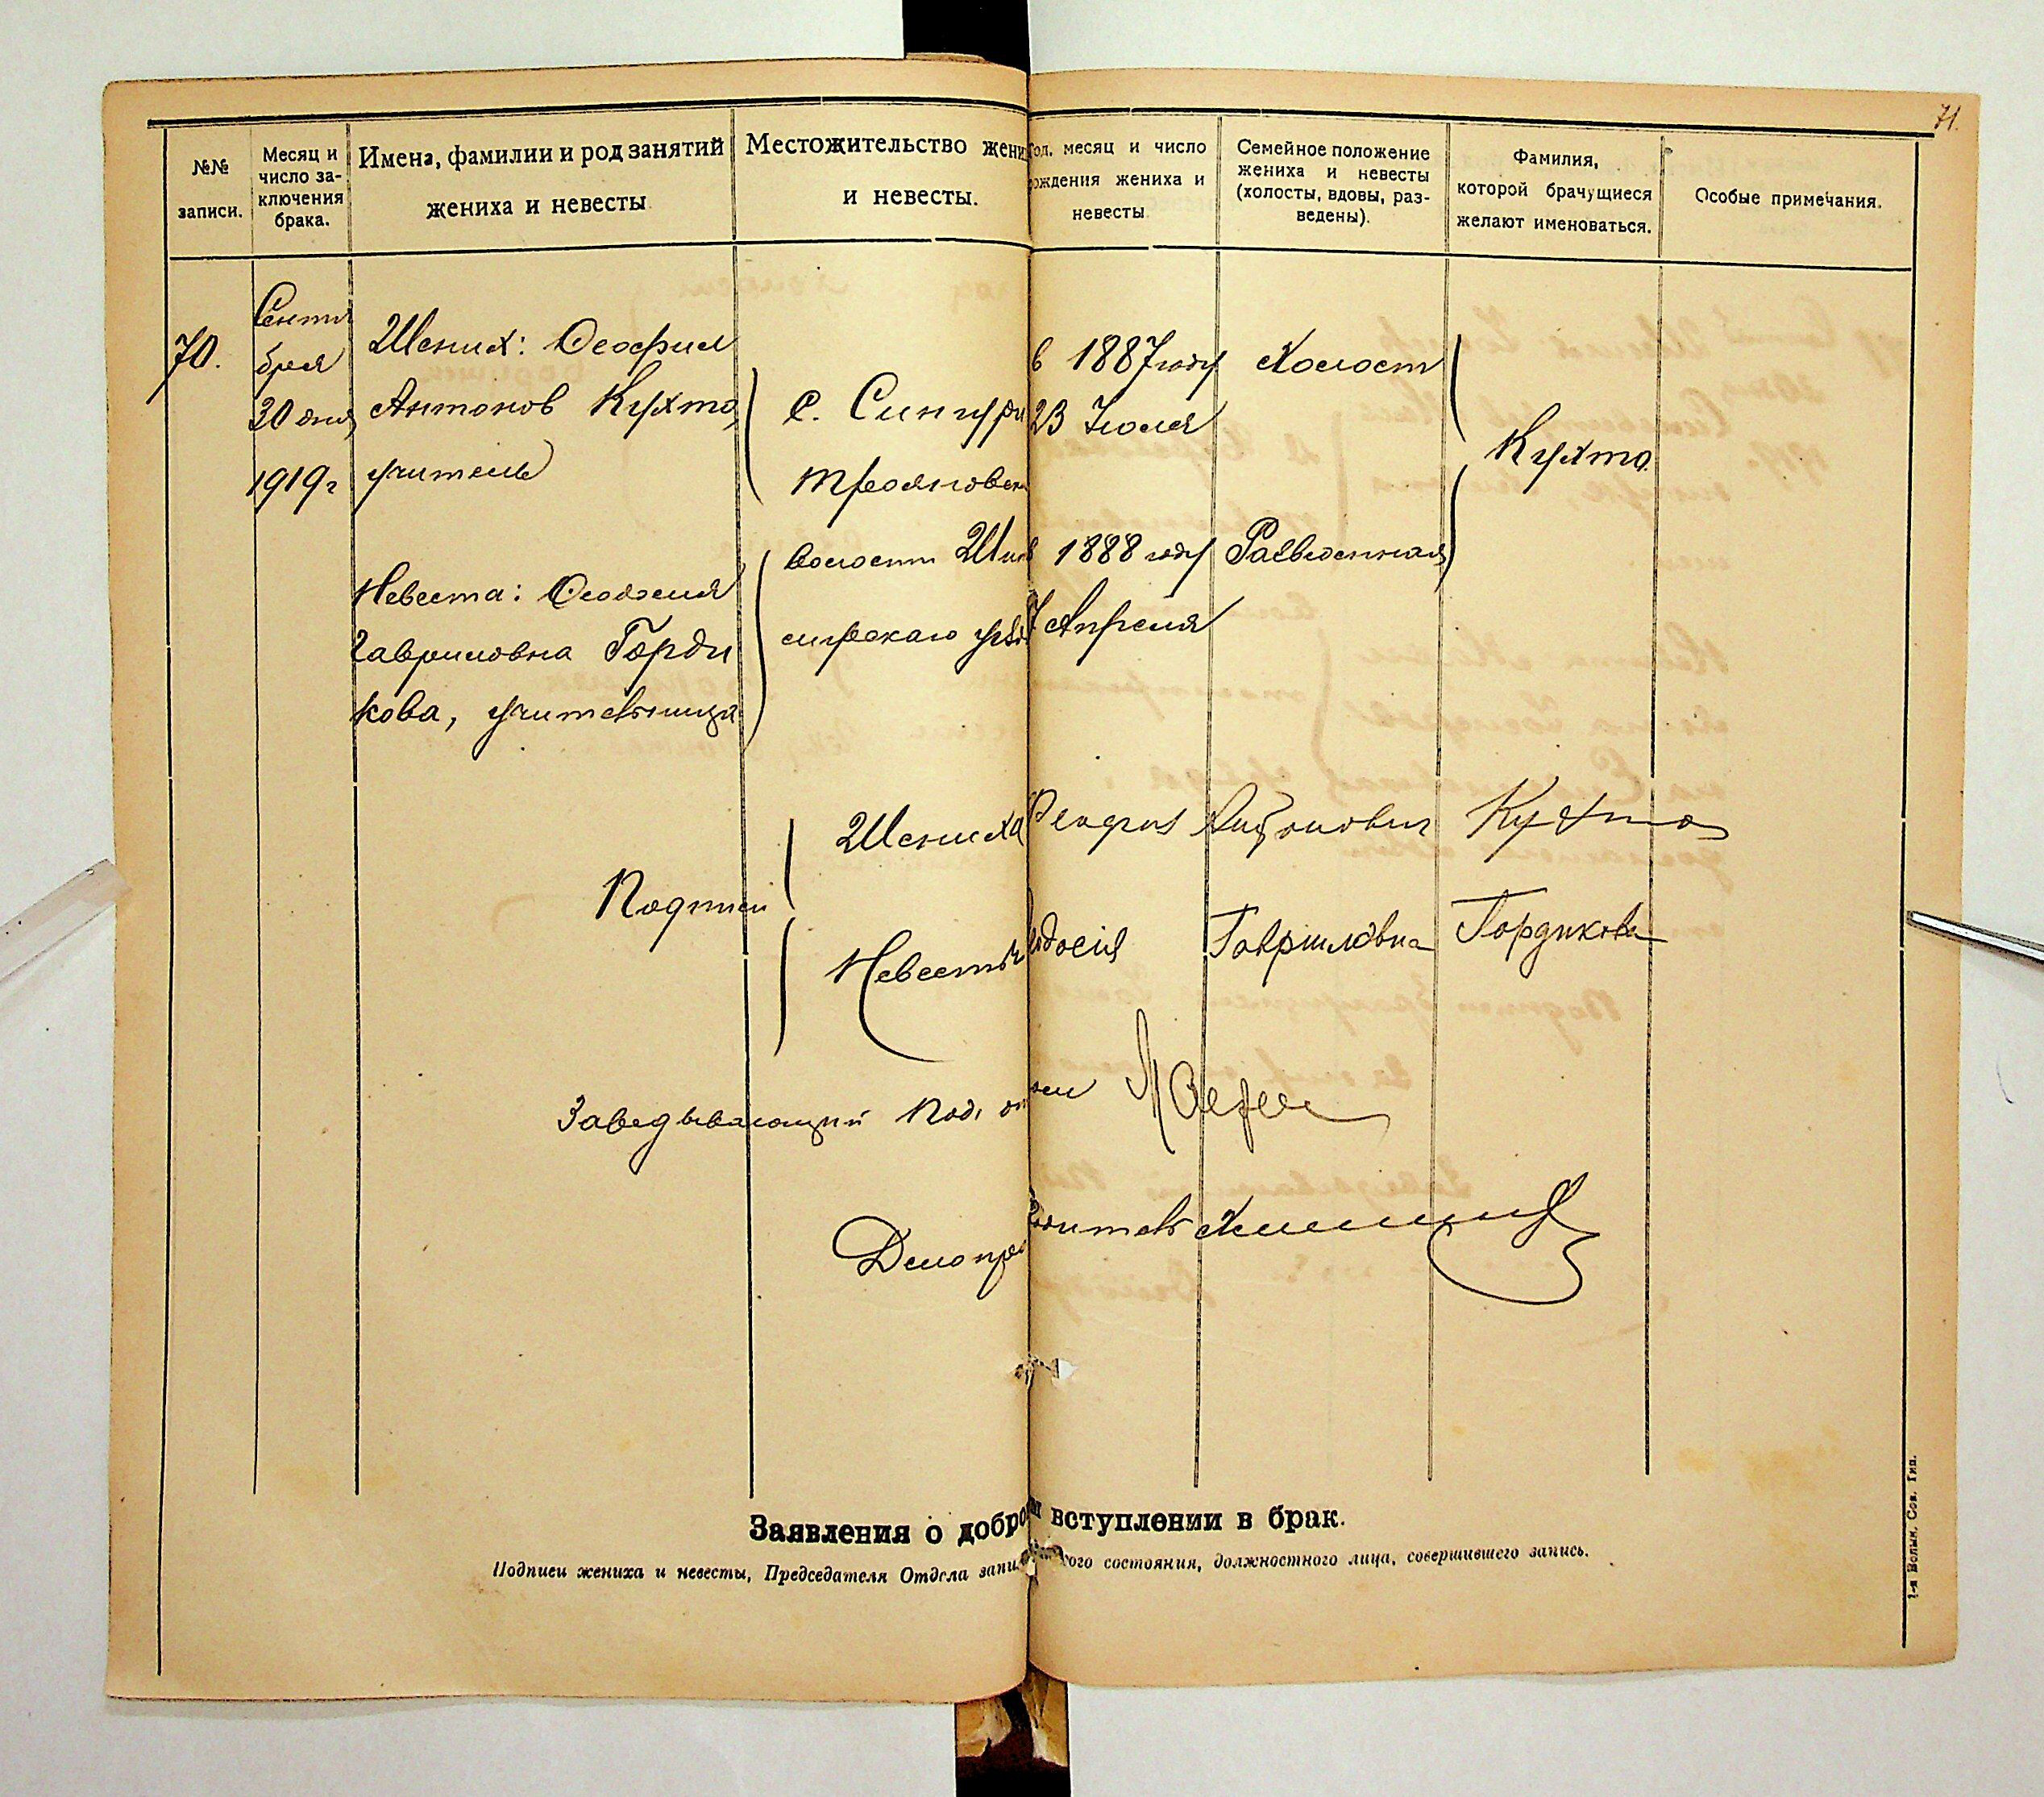 71.
№№ записи.
Месяц и число заключения брака.
Имена, фамилии и род занятий жениха и невесты
Местожительство жени
и невесты.
год, месяц и число
рождения жениха и
невесты
Семейное положение
жениха и невесты
(холосты, вдовы, раз-
ведены).
Фамилия,
которой брачущиеся
желают именоваться.
Особые примечания.
70.
Сентя
бря
30 дня
1919 г
Жених: Феофил
Антонов Кухто,
учитель
Невеста: Феодосия
Гавриловна Горди
кова, учительница
с. Сингури
Трояновск
волости Жит
омирскаго уезд
в 1887 году
23 Июля
в 1888 году
7 Апреля
Холост
Разведенная
Кухто.
Подписи
Жениха Антонович Кухто
Невесты одосия Гавриловна Гордикова
Заведывающий Под.
Делопро водитель
Заявления о добро м вступлении в брак.
Подписи жениха и невесты, Председателя Отдела запи кого состояния, должностного лица, совершившего запись.
1-я Волын. Сов. Тип.